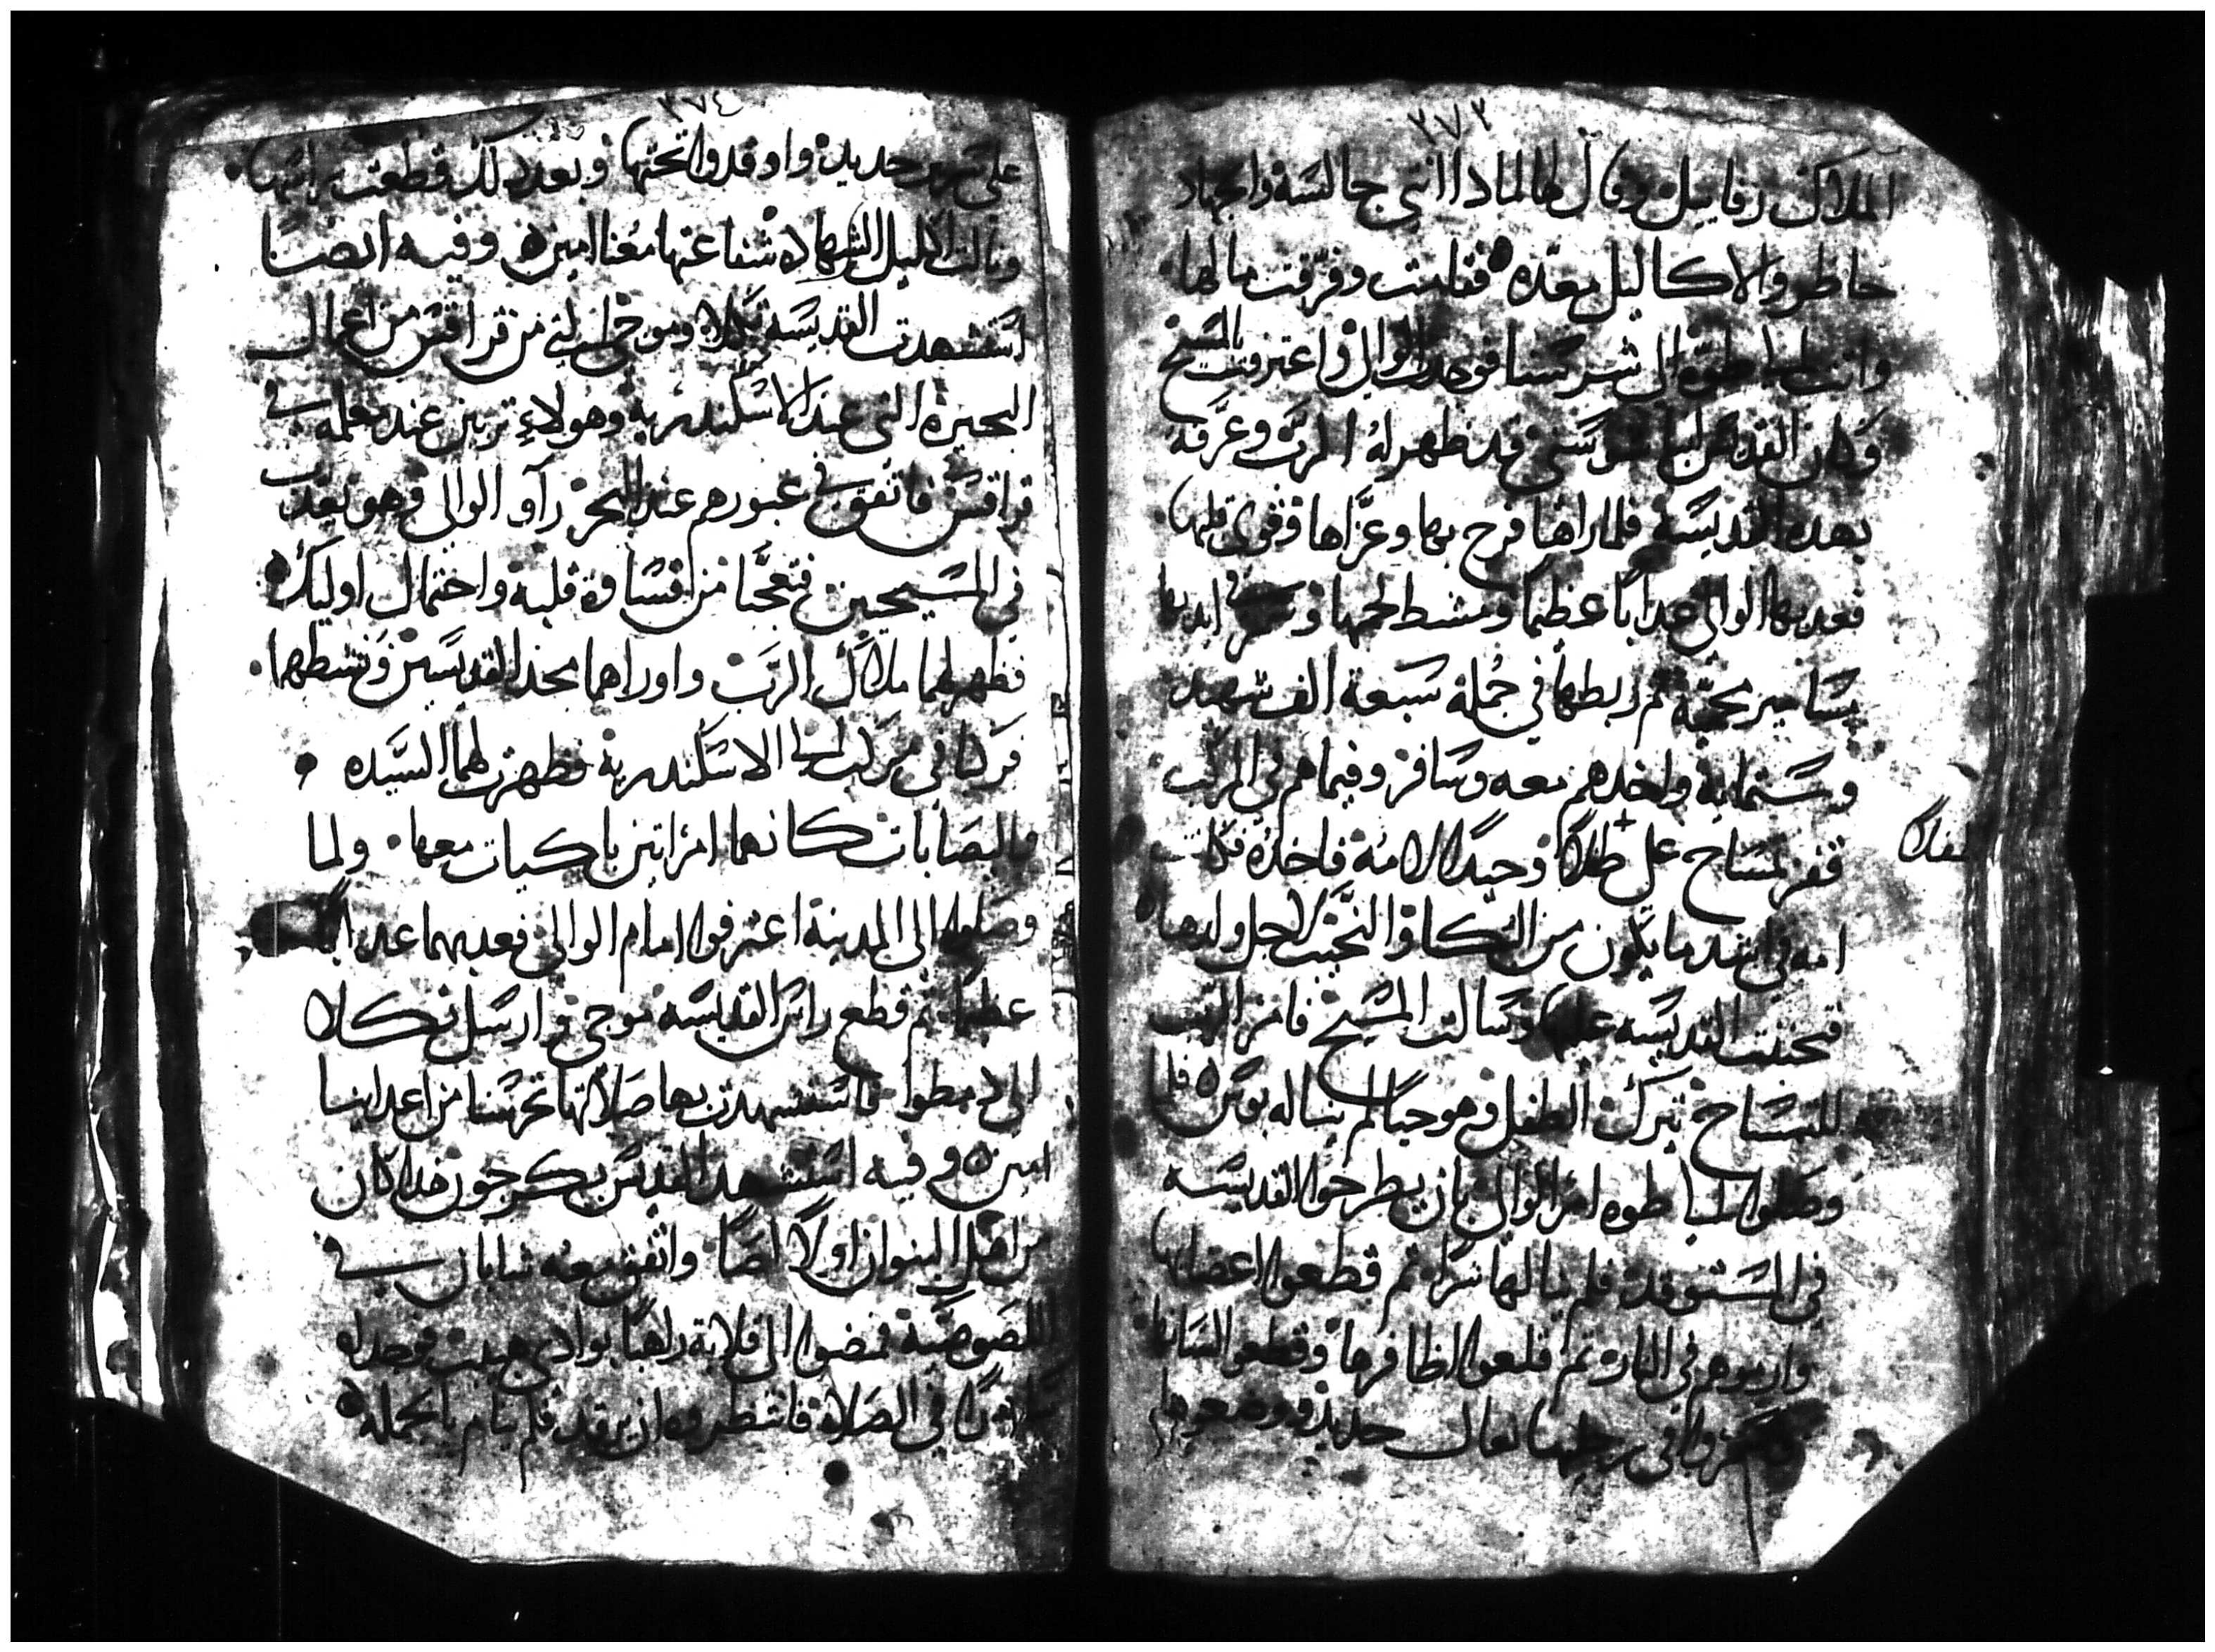 ٣٧٣
الملاك رفاييل وقال لها لمادا انتي جالسه والجهاد
حاظر والاكاليل معده فقامت وفرقت مالها
واتت الى طوه الى شرسنا فوجدت الوالي واعترفت بالمسيح
وكان القديس ابا قد ظهر له الرب وعرفه
بهده القديسه فلما راها فرح بها وعزاها وقوي قلبها
فعدبها الوالي عدابا عظيما ومشط لحمها و ايديها
بمسامير محميه ثم ربطها في جملة سبعة الف شهيد
وستمايه واخدهم معه وسافر وفيما هم في المركب
قفز تمساح على طفلا وحيدا لامه فاخده فكانت
طفلا
امه في اشد ما يكون من البكاء والنحيب لاجل ولدها
فتحننت القديسه عليها وسالت المسيح فامر الرب
للتمساح بترك الطفل وهو حيا لم يناله بوس فلما
وصلوا الى طوه امر الوالي بان يطرحوا القديسه
في المستوقد فلم ينالها شرا ثم قطعوا اعضايها
وارموهم في النار ثم قلعوا اظافرها وقطعوا لسانها
وسمروا في رجليها نعال حديد ووضعوها
٣٧٤
على سرير حديد واوقدوا تحتها وبعد دلك قطعت راسها
ونالت اكليل الشهاده شفاعتها معنا امين وفيه ايضا
استشهدت القديسه تكلا وموجي من قراقس من اعمال
البحيره التي عند الاسكندريه وهولاء تربين عند معلمه في
قراقس فاتفق في عبورهم عند البحر رآو الوالي وهو يعدب
في المسيحيين فتعجبا من اقساوة قلبه واحتمال اوليك
فظهر لهما ملاك الرب واوراهما مجد القديسين ونشطهما
فركبا في مركب الى الاسكندريه فظهرت لهما السيده
واليصابات كانهما امراتين باكيات معهما ولما
وصلوا الى المدينة اعترفوا امام الوالي فعدبهما عدابا
عظيما ثم قطع راس القديسه موجي وارسل تكلا
الى دمطوا فاستشهدت بها صلاتها تحرسنا من اعداينا
امين وفيه استشهد القديس بكرجون هدا كان
من اهل البنوان اولا لصا واتفق معه شابان في
اللصوصيه فمضوا الى قلاية راهبا بوادي هبيب فوجداه
في الصلاة فانتظروه ان يرقد فلم ينام بالجمله